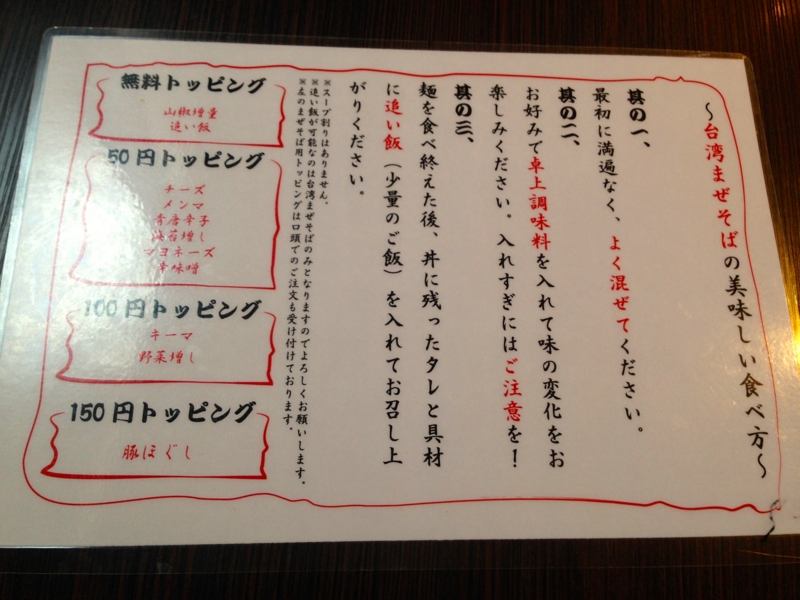 ～台湾まぜそばの美味しい食べ方～
其の一、
最初に満遍なく、よく混ぜてください。
其の二、
お好みで卓上調味料を入れて味の変化をお
楽しみください。入れすぎにはご注意を！
其の三、
麺を食べ終えた後、丼に残ったタレと具材
に追い飯（少量のご飯）を入れてお召し上
がりください。
※スープ割りはありません。
※追い飯が可能なのは台湾まぜそばのみとなりますのでよろしくお願いします。
※左のまぜそば用トッピングは口頭でのご注文も受け付けております。
無料トッピング
山椒増量
追い飯
50円トッピング
チーズ
メンマ
青唐辛子
海苔増し
マヨネーズ
辛味噌
100円トッピング
キーマ
野菜増し
150円トッピング
豚ほぐし